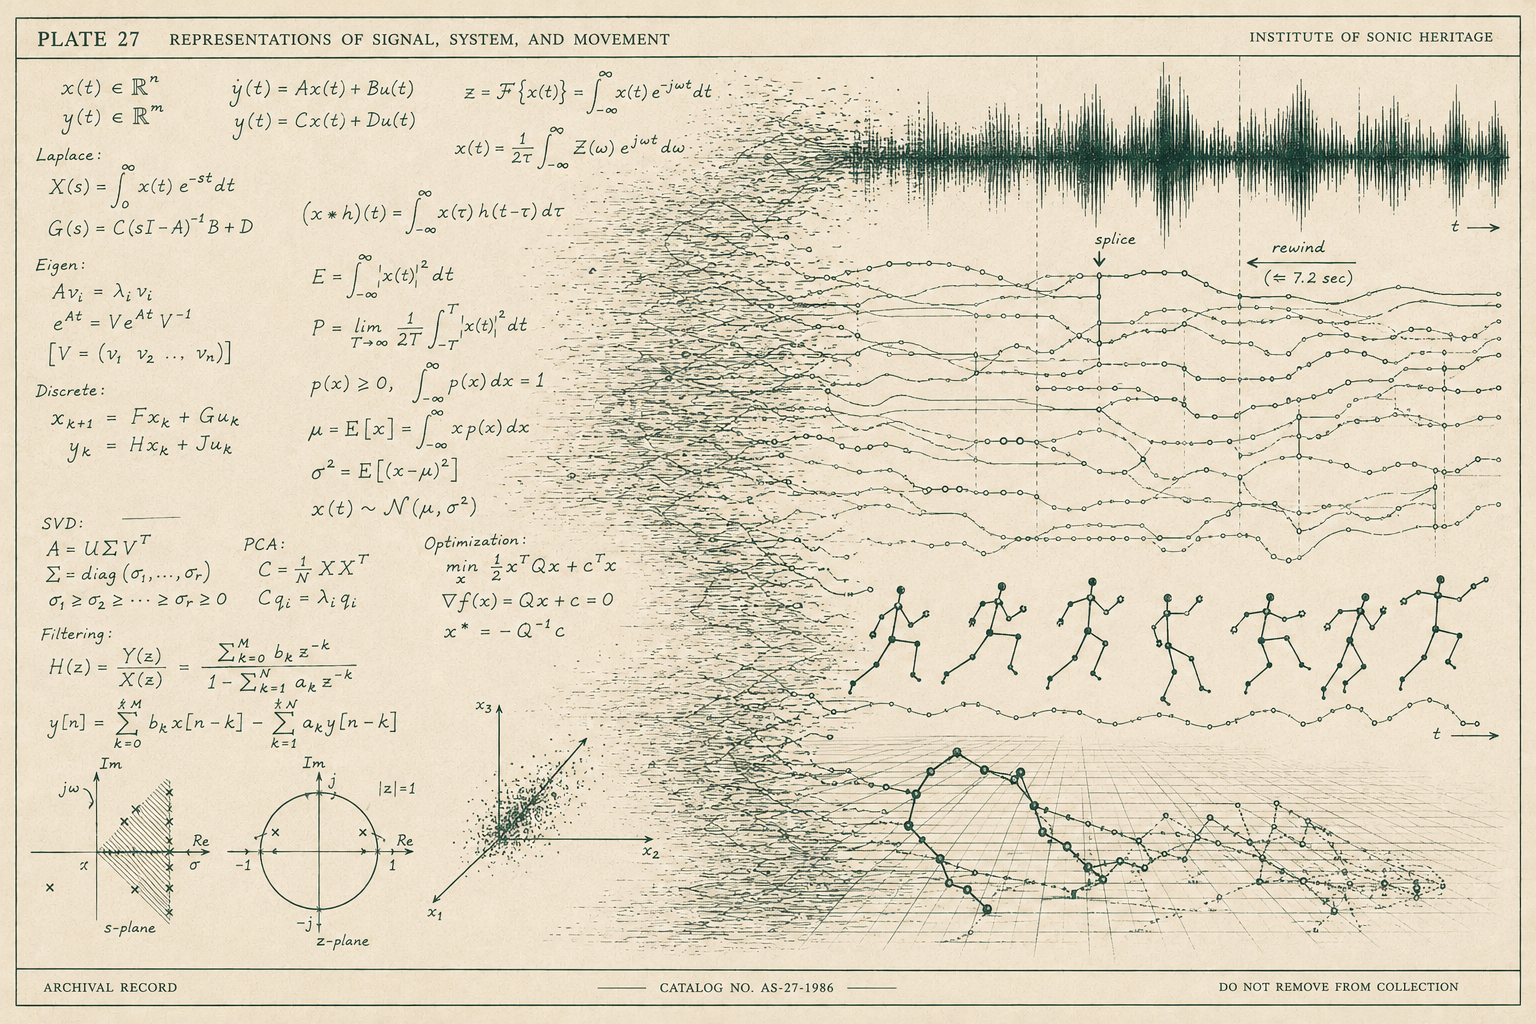 PLATE 27 REPRESENTATIONS OF SIGNAL, SYSTEM, AND MOVEMENT
INSTITUTE OF SONIC HERITAGE
x(t) ∈ ℝⁿ
y(t) ∈ ℝᵐ
ẏ(t) = Ax(t) + Bu(t)
y(t) = Cx(t) + Du(t)
z = ℱ{x(t)} = ∫_{-∞}^{∞} x(t) e^{-jωt} dt
x(t) = 1/2τ ∫_{-∞}^{∞} Z(ω) e^{jωt} dω
Laplace:
X(s) = ∫_0^∞ x(t) e^{-st} dt
G(s) = C(sI − A)^{-1} B + D
(x * h)(t) = ∫_{-∞}^{∞} x(τ) h(t−τ) dτ
Eigen:
Av_i = λ_i v_i
e^{At} = Ve^{At} V^{-1}
[V = (v_1 v_2 .., v_n)]
E = ∫_{-∞}^{∞} |x(t)|² dt
P = lim_{T→∞} 1/2T ∫_{-T}^{T} |x(t)|² dt
p(x) ≥ 0, ∫_{-∞}^{∞} p(x) dx = 1
μ = E[x] = ∫_{-∞}^{∞} x p(x) dx
σ² = E[(x−μ)²]
x(t) ~ 𝒩(μ, σ²)
Discrete:
x_{k+1} = Fx_k + Gu_k
y_k = Hx_k + Ju_k
SVD:
A = UΣV^T
Σ = diag (σ_1,...,σ_r)
σ_1 ≥ σ_2 ≥ ··· ≥ σ_r ≥ 0
PCA:
C = 1/N XX^T
Cq_i = λ_i q_i
Optimization:
min_x 1/2 x^T Qx + c^T x
∇f(x) = Qx + c = 0
x* = −Q^{-1} c
Filtering:
H(z) = Y(z)/X(z) = Σ_{k=0}^{M} b_k z^{-k} / 1 − Σ_{k=1}^{N} a_k z^{-k}
y[n] = Σ_{k=0}^{M} b_k x[n−k] − Σ_{k=1}^{N} a_k y[n−k]
Im
jω
Re
σ
s-plane
Im
j
|z|=1
Re
−1
1
−j
z-plane
x_3
x_2
x_1
t
splice
rewind
(⇆ 7.2 sec)
t
ARCHIVAL RECORD
CATALOG NO. AS-27-1986
DO NOT REMOVE FROM COLLECTION